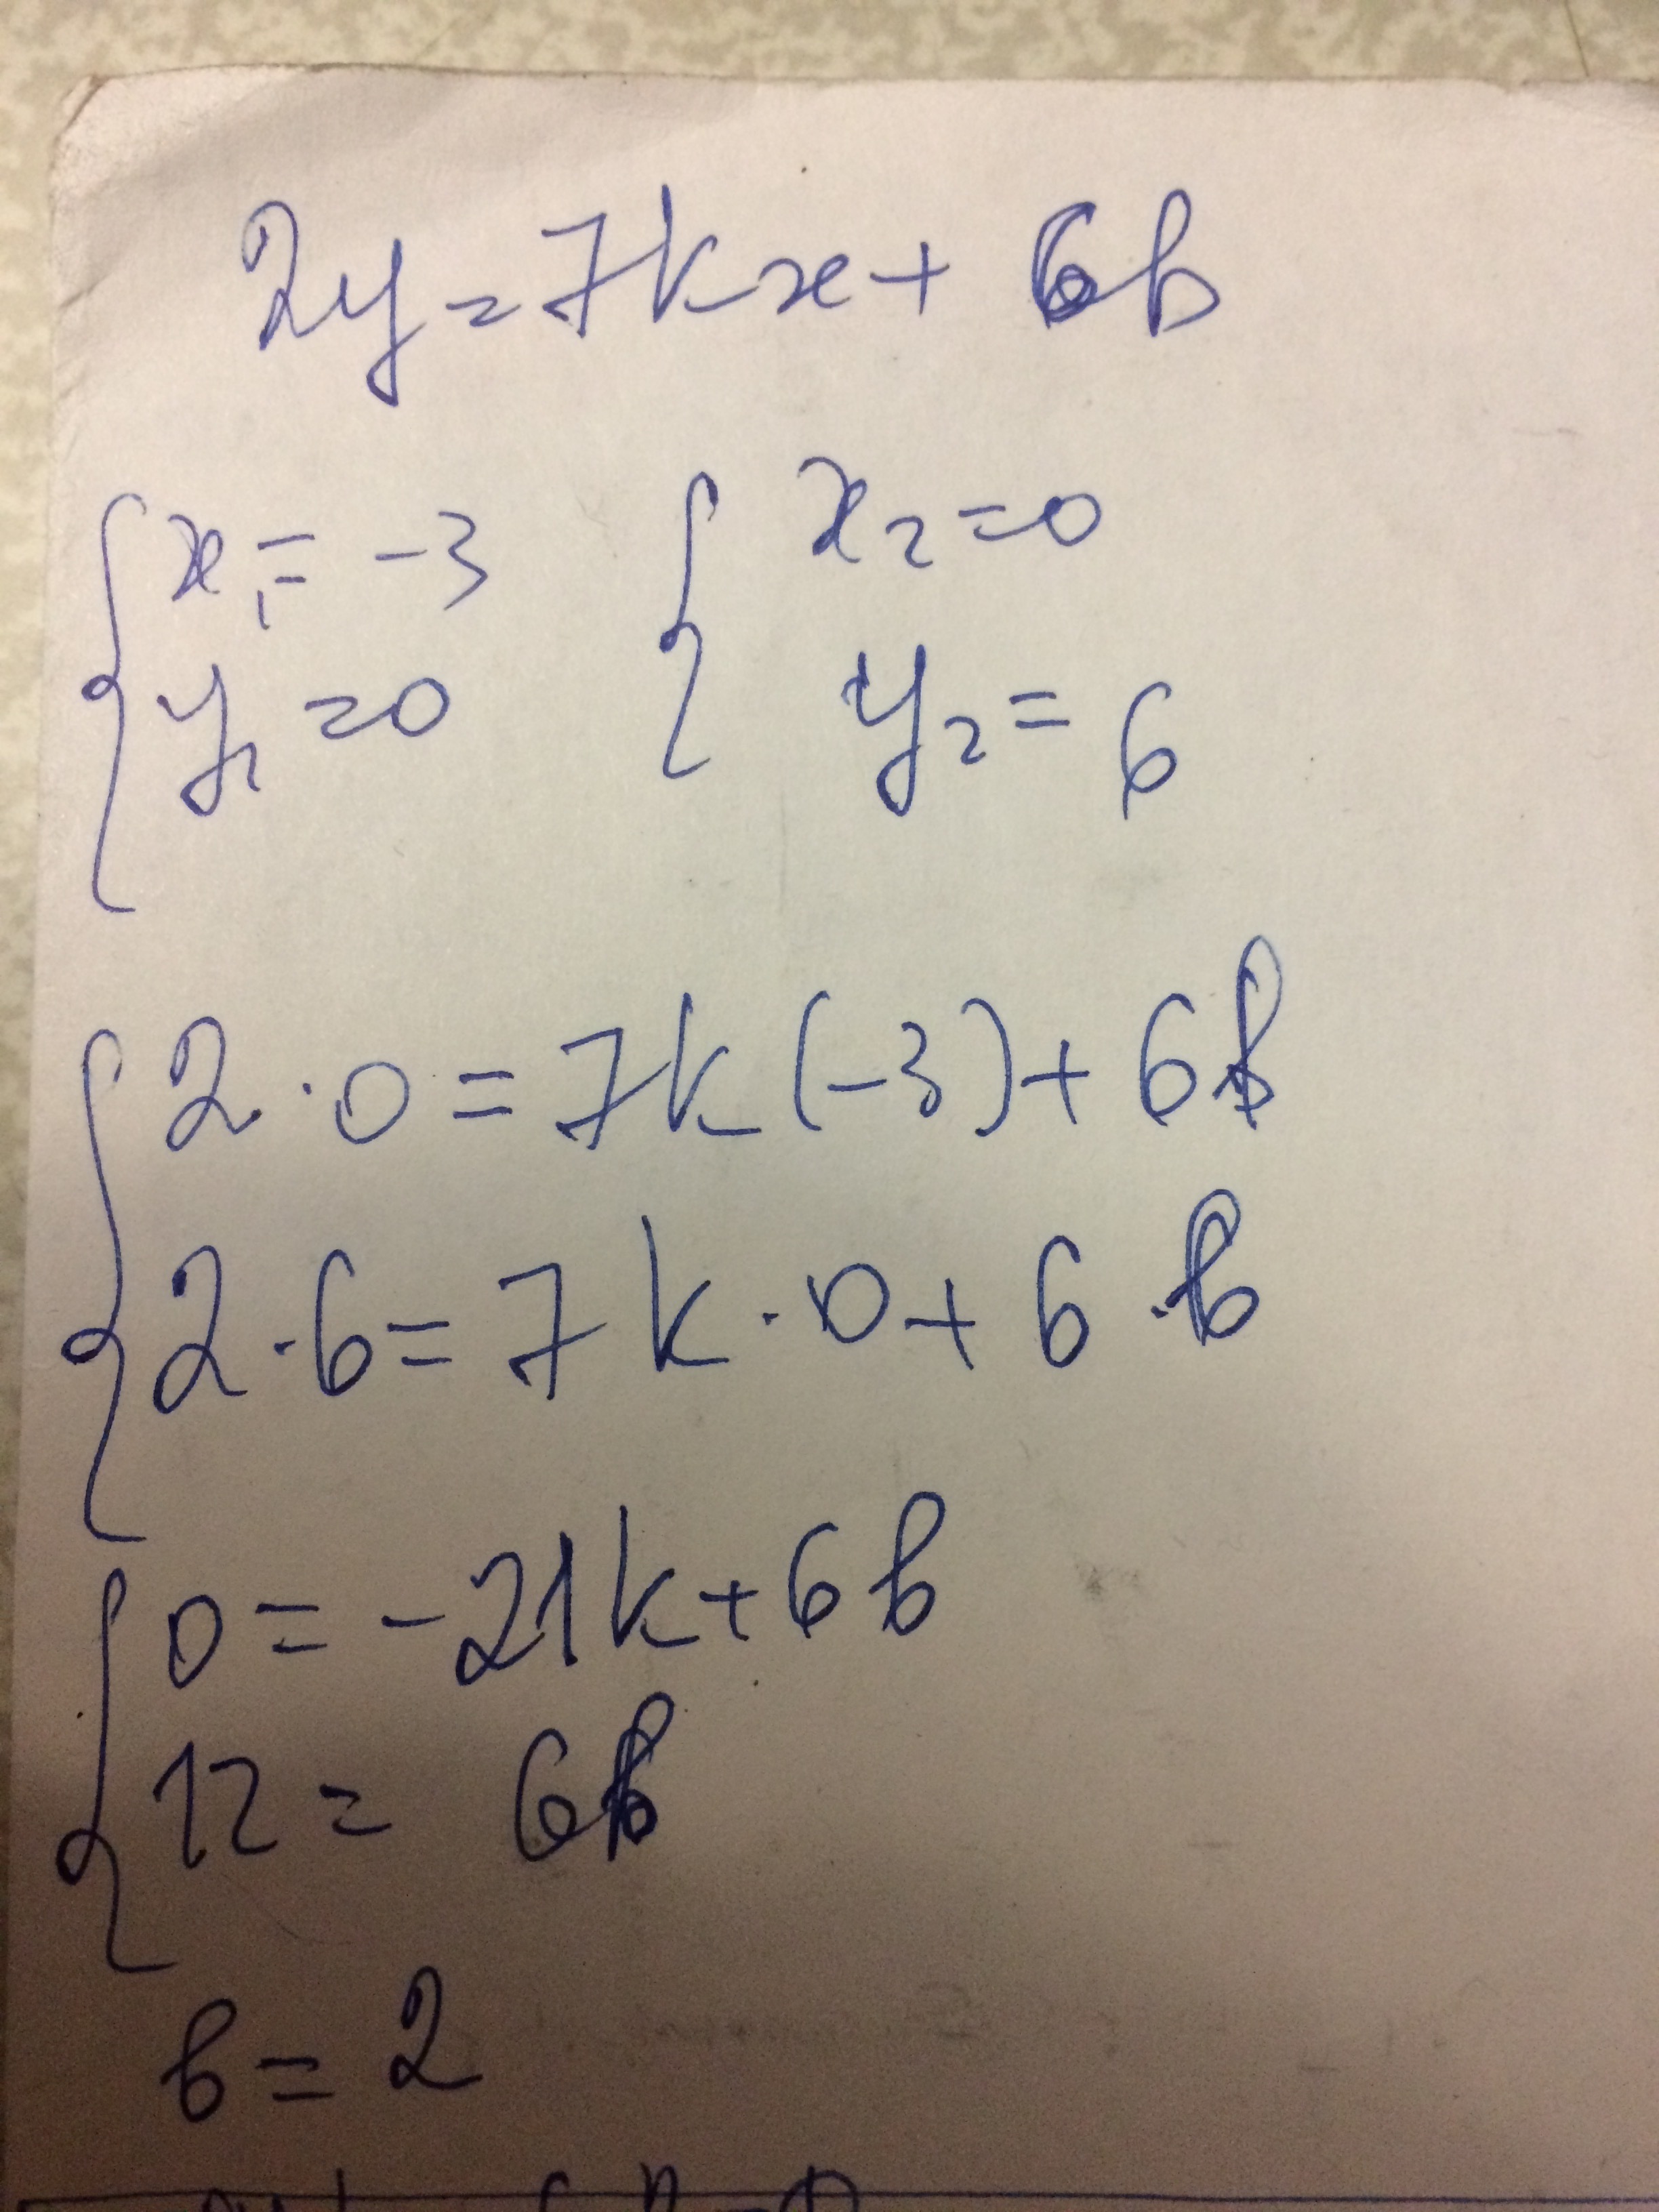 2y=7kx+6b
x₁=-3 x₂=0
y₁=0 y₂=6
2·0=7k(-3)+6b
2·6=7k·0+6·b
0=-21k+6b
12=6b
b=2